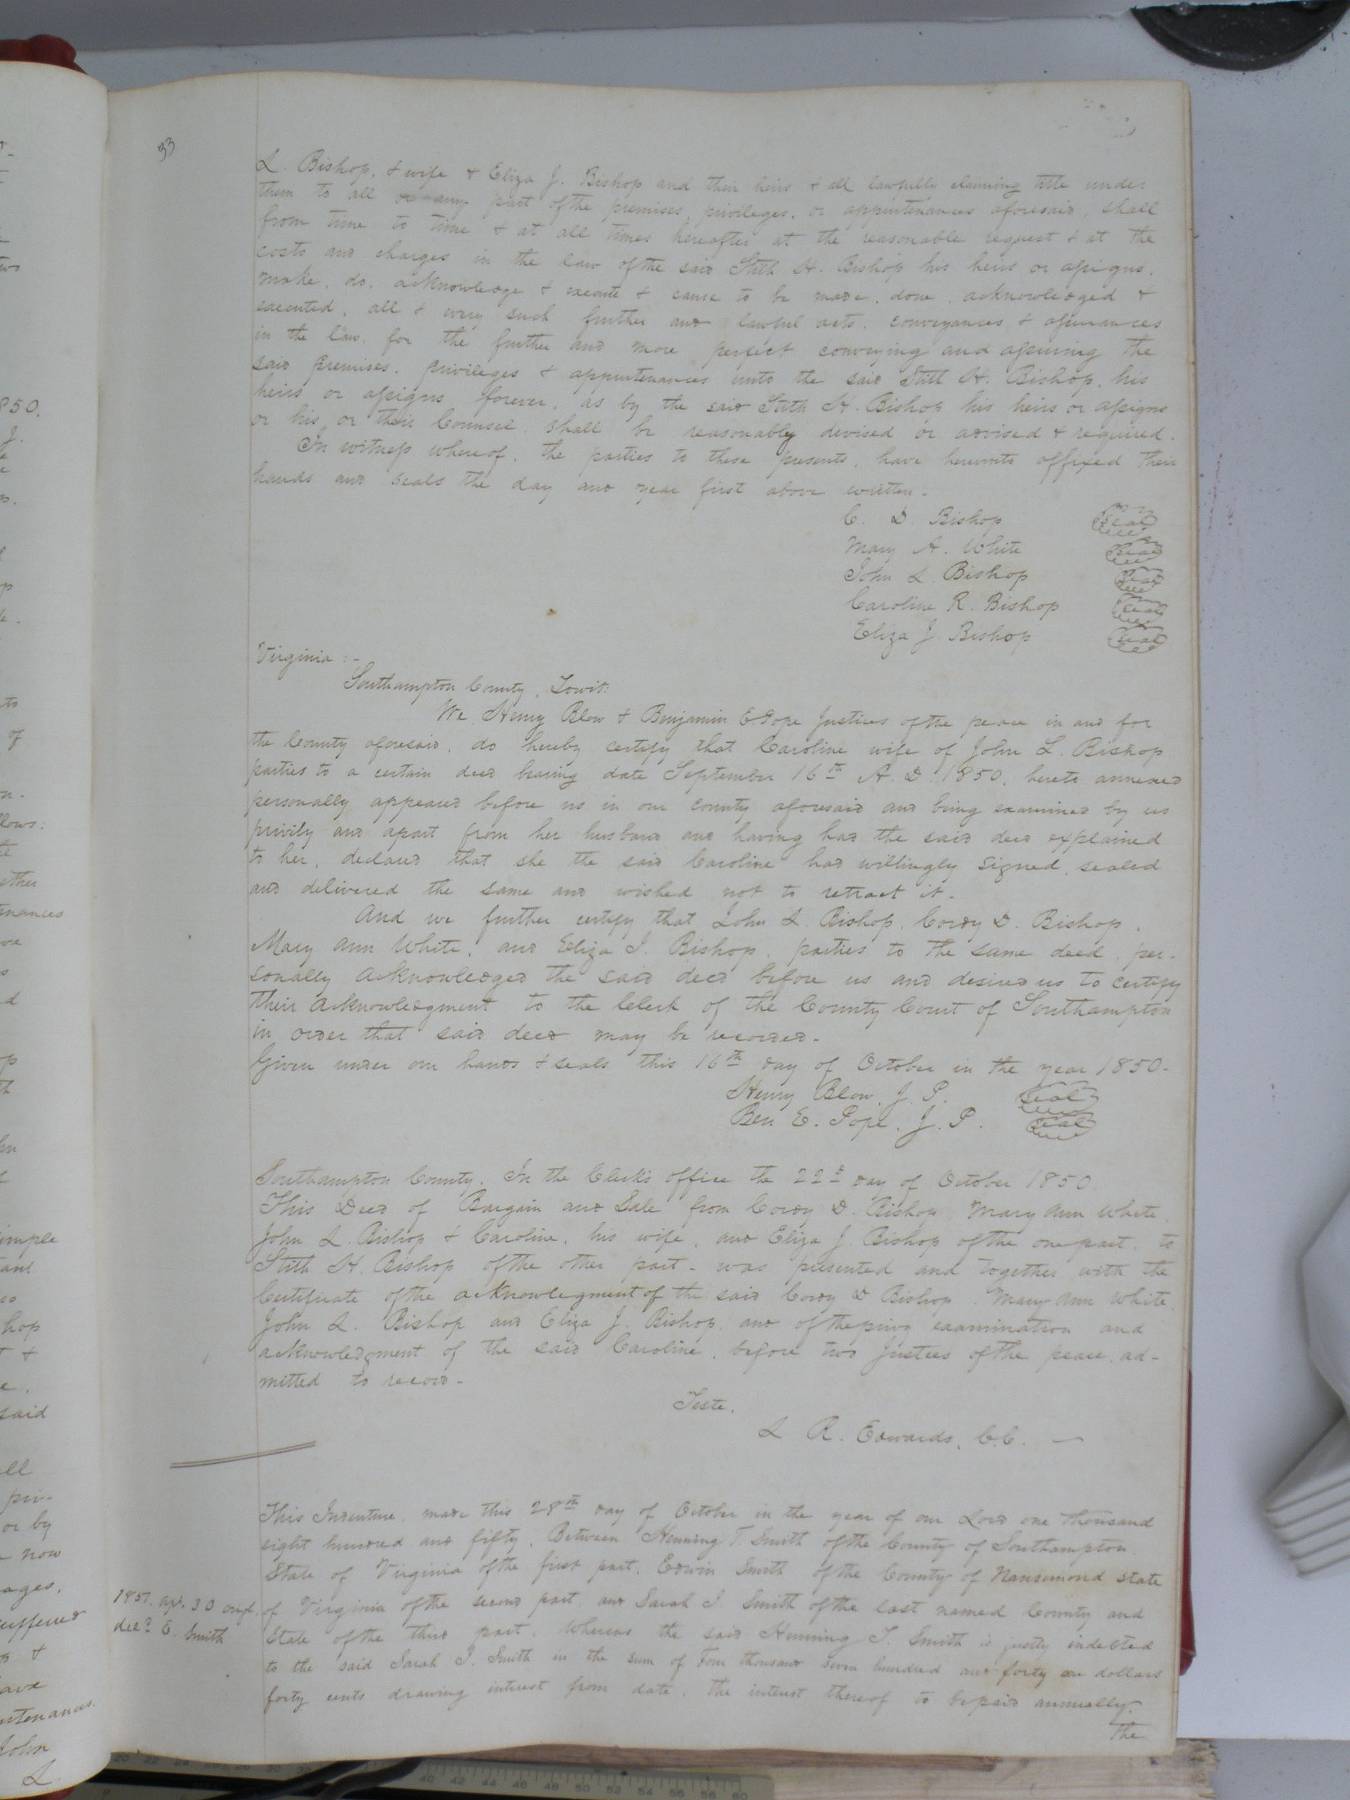 33
L. Bishop, & wife & Eliza J. Bishop and their heirs & all lawfully claiming title under
them to all or any part of the premises, privileges, or appurtenances aforesaid, shall
from time to time & at all times hereafter at the reasonable request & at the
costs and charges in the law of the said Stith H. Bishop his heirs or assigns,
make, do, acknowledge & execute & cause to be made, done, acknowledged &
executed, all & every such further and lawful acts, conveyances & assurances
in the law, for the further and more perfect conveying and assuring the
said premises, privileges & appurtenances unto the said Stith H. Bishop, his
heirs or assigns forever, as by the said Stith H. Bishop his heirs or assigns
or his or their Counsel shall be reasonably devised or advised & required.
In witness whereof, the parties to these presents, have hereunto affixed their
hands and seals the day and year first above written.
C. D. Bishop Seal
Mary A. White Seal
John L. Bishop Seal
Caroline R. Bishop Seal
Eliza J. Bishop Seal
Virginia:-
Southampton County, Towit:
We, Henry Blow & Benjamin E Pope Justices of the peace in and for
the County aforesaid, do hereby certify that Caroline wife of John L. Bishop
parties to a certain deed bearing date September 16th A. D. 1850, hereto annexed
personally appeared before us in our county aforesaid and being examined by us
privily and apart from her husband and having had the said deed explained
to her, declared that she the said Caroline had willingly signed, sealed
and delivered the same and wished not to retract it.
And we further certify that John L. Bishop, Cordy D. Bishop,
Mary Ann White, and Eliza J. Bishop, parties to the same deed, per-
sonally acknowledged the said deed before us and desired us to certify
their acknowledgment to the Clerk of the County Court of Southampton
in order that said deed may be recorded.
Given under our hands & seals this 16th day of October in the year 1850.
Henry Blow, J. P. Seal
Ben E. Pope, J. P. Seal
Southampton County, In the Clerk's office the 22d day of October 1850
This Deed of Bargain and Sale from Cordy D. Bishop, Mary Ann White,
John L. Bishop & Caroline, his wife, and Eliza J. Bishop of the one part, to
Stith H. Bishop of the other part - was presented and together with the
Certificate of the acknowledgment of the said Cordy D Bishop, Mary Ann White
John L. Bishop and Eliza J. Bishop, and of the privy examination and
acknowledgment of the said Caroline, before two Justices of the peace, ad-
mitted to record.
Teste,
L R. Edwards, C.C.
This Indenture, made this 28th day of October in the year of our Lord one thousand
eight hundred and fifty, Between Henning T. Smith of the County of Southampton
State of Virginia of the first part, Edwin Smith of the County of Nansemond state
of Virginia of the second part, and Sarah J. Smith of the last named County and
State of the third part. Whereas the said Henning T. Smith is justly indebted
to the said Sarah J. Smith in the sum of Four thousand seven hundred and forty one dollars
forty cents drawing interest from date, the interest thereof to be paid annually.
the
1851. Apl. 30
deld E. Smith